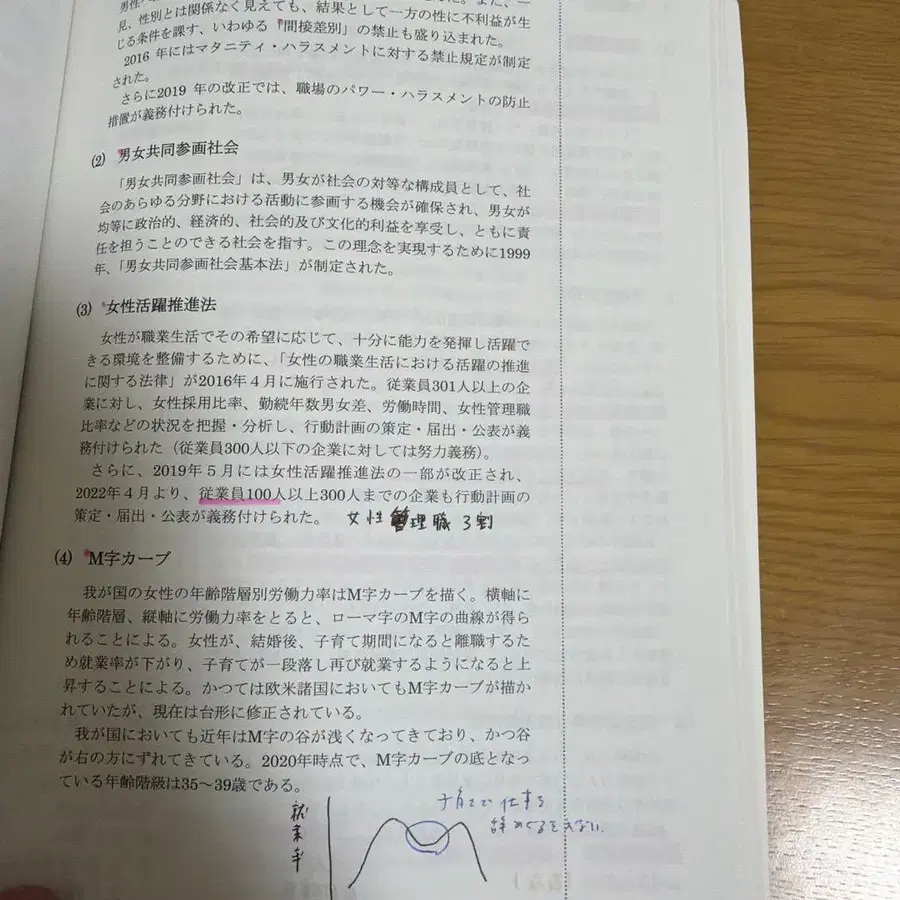 見、性別とは関係なく見えても、結果として一方の性に不利益が生
じる条件を課す、いわゆる「間接差別」の禁止も盛り込まれた。
2016 年にはマタニティ・ハラスメントに対する禁止規定が制定
された。
さらに2019 年の改正では、職場のパワー・ハラスメントの防止
措置が義務付けられた。
(2) 男女共同参画社会
「男女共同参画社会」は、男女が社会の対等な構成員として、社
会のあらゆる分野における活動に参画する機会が確保され、男女が
均等に政治的、経済的、社会的及び文化的利益を享受し、ともに責
任を担うことのできる社会を指す。この理念を実現するために1999
年、「男女共同参画社会基本法」が制定された。
(3) 女性活躍推進法
女性が職業生活でその希望に応じて、十分に能力を発揮し活躍で
きる環境を整備するために、「女性の職業生活における活躍の推進
に関する法律」が2016年４月に施行された。従業員301人以上の企
業に対し、女性採用比率、勤続年数男女差、労働時間、女性管理職
比率などの状況を把握・分析し、行動計画の策定・届出・公表が義
務付けられた（従業員300人以下の企業に対しては努力義務）。
さらに、2019年５月には女性活躍推進法の一部が改正され、
2022年４月より、従業員100人以上300人までの企業も行動計画の
策定・届出・公表が義務付けられた。 女性管理職 3割
(4) M字カーブ
我が国の女性の年齢階層別労働力率はM字カーブを描く。横軸に
年齢階層、縦軸に労働力率をとると、ローマ字のM字の曲線が得ら
れることによる。女性が、結婚後、子育て期間になると離職するた
め就業率が下がり、子育てが一段落し再び就業するようになると上
昇することによる。かつては欧米諸国においてもM字カーブが描か
れていたが、現在は台形に修正されている。
我が国においても近年はM字の谷が浅くなってきており、かつ谷
が右の方にずれてきている。2020年時点で、M字カーブの底となっ
ている年齢階級は35～39歳である。
就業率
子育てで仕事を
辞めざるをえない